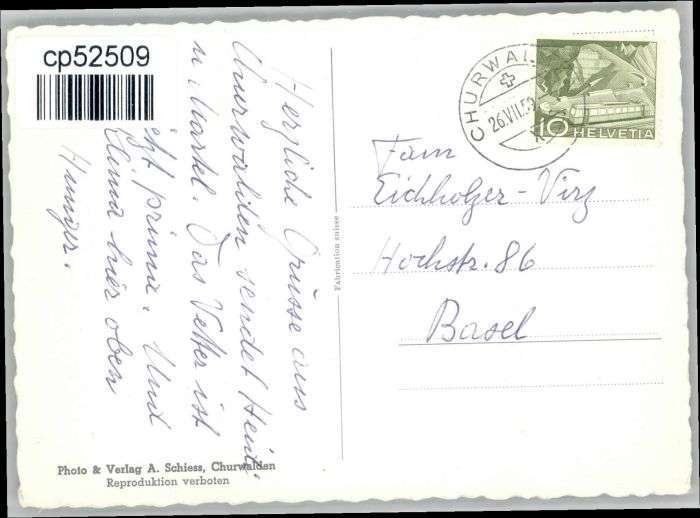 cp52509
CHURWALDEN
26.VII.5
10 HELVETIA
Herzliche Grüsse aus
Churwalden sendet Heidi
u. Martel. Das Wetter ist
jetzt prima. Und
Clima hier oben
Hunger.
Fam
Eichholzer-Virz
Hochstr. 86
Basel
Fabrication suisse
Photo & Verlag A. Schiess, Churwalden
Reproduktion verboten